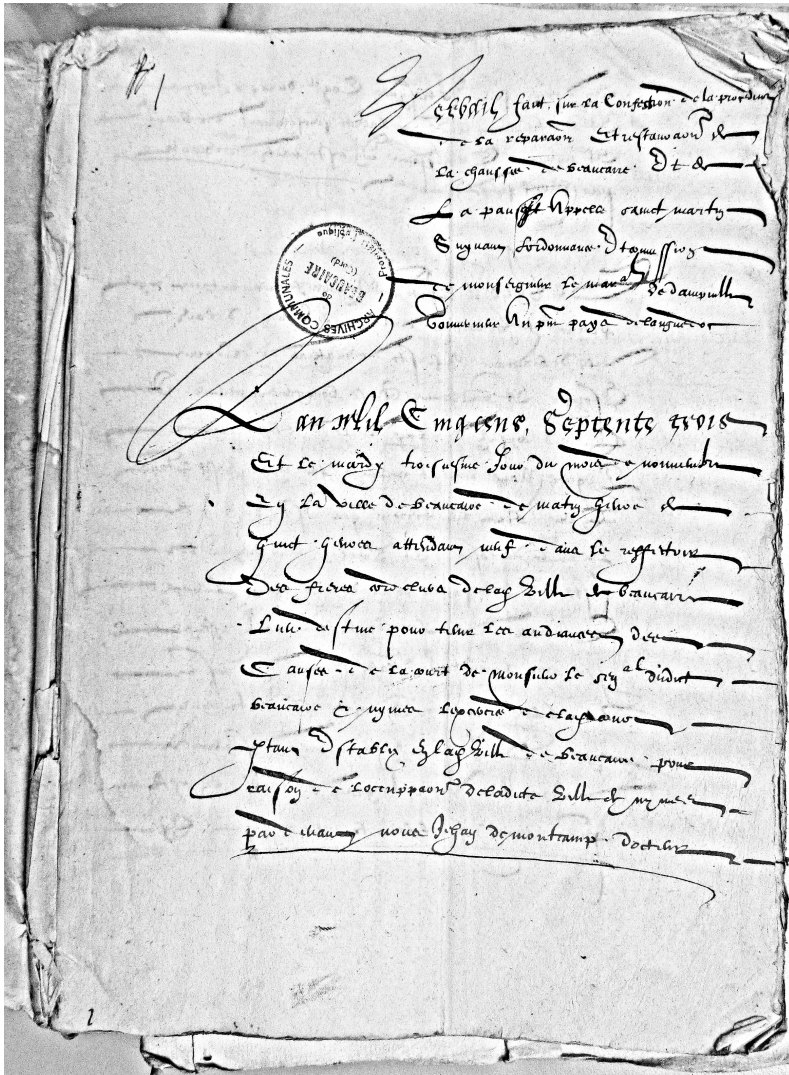 1
Verbail faict sur la Confection de la procedure
de la reparaon Et restauraon de
la chaussee de beaucaire Et de
La Appele sainct martin
Suyvant Lordonnance Et commission
de monseigneur le maral de dampville
Gouverneur En pnt pays de languedoc
ARCHIVES COMMUNALES
de
BEAUCAIRE
(Gard)
Propriété Publique
Lan Mil Cinq cens, Septente trois
Et le mardy troisiesme Jour du mois de novembre
En La ville de beaucaire de matin heure de
huict heures attendant neuf dans le reffertoir
Des freres de lad ville de beaucaire
Lieu destine pour tenir Les audiances des
Causes de la court de monsieur le senal dudict
beaucaire & nymes Lexercice de lad court
estant Estably En lad ville de beaucaire pour
raison de Loccuppaon de ladicte ville de nymes
par devant nous Jehan de montcamp docteur
1